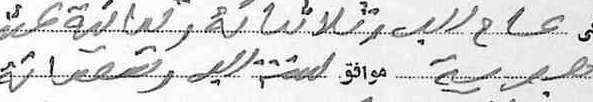 في عام الف وثلاثمائة وثمانية عشر
هجرية موافق لسنة الف وتسعمائة